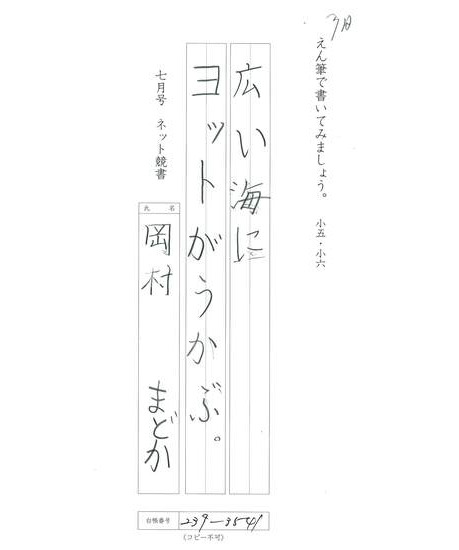 3月
えん筆で書いてみましょう。 小五・小六
広い海に
ヨットがうかぶ。
七月号 ネット競書
氏名
岡村 まどか
台帳番号 239-3541
(コピー不可)